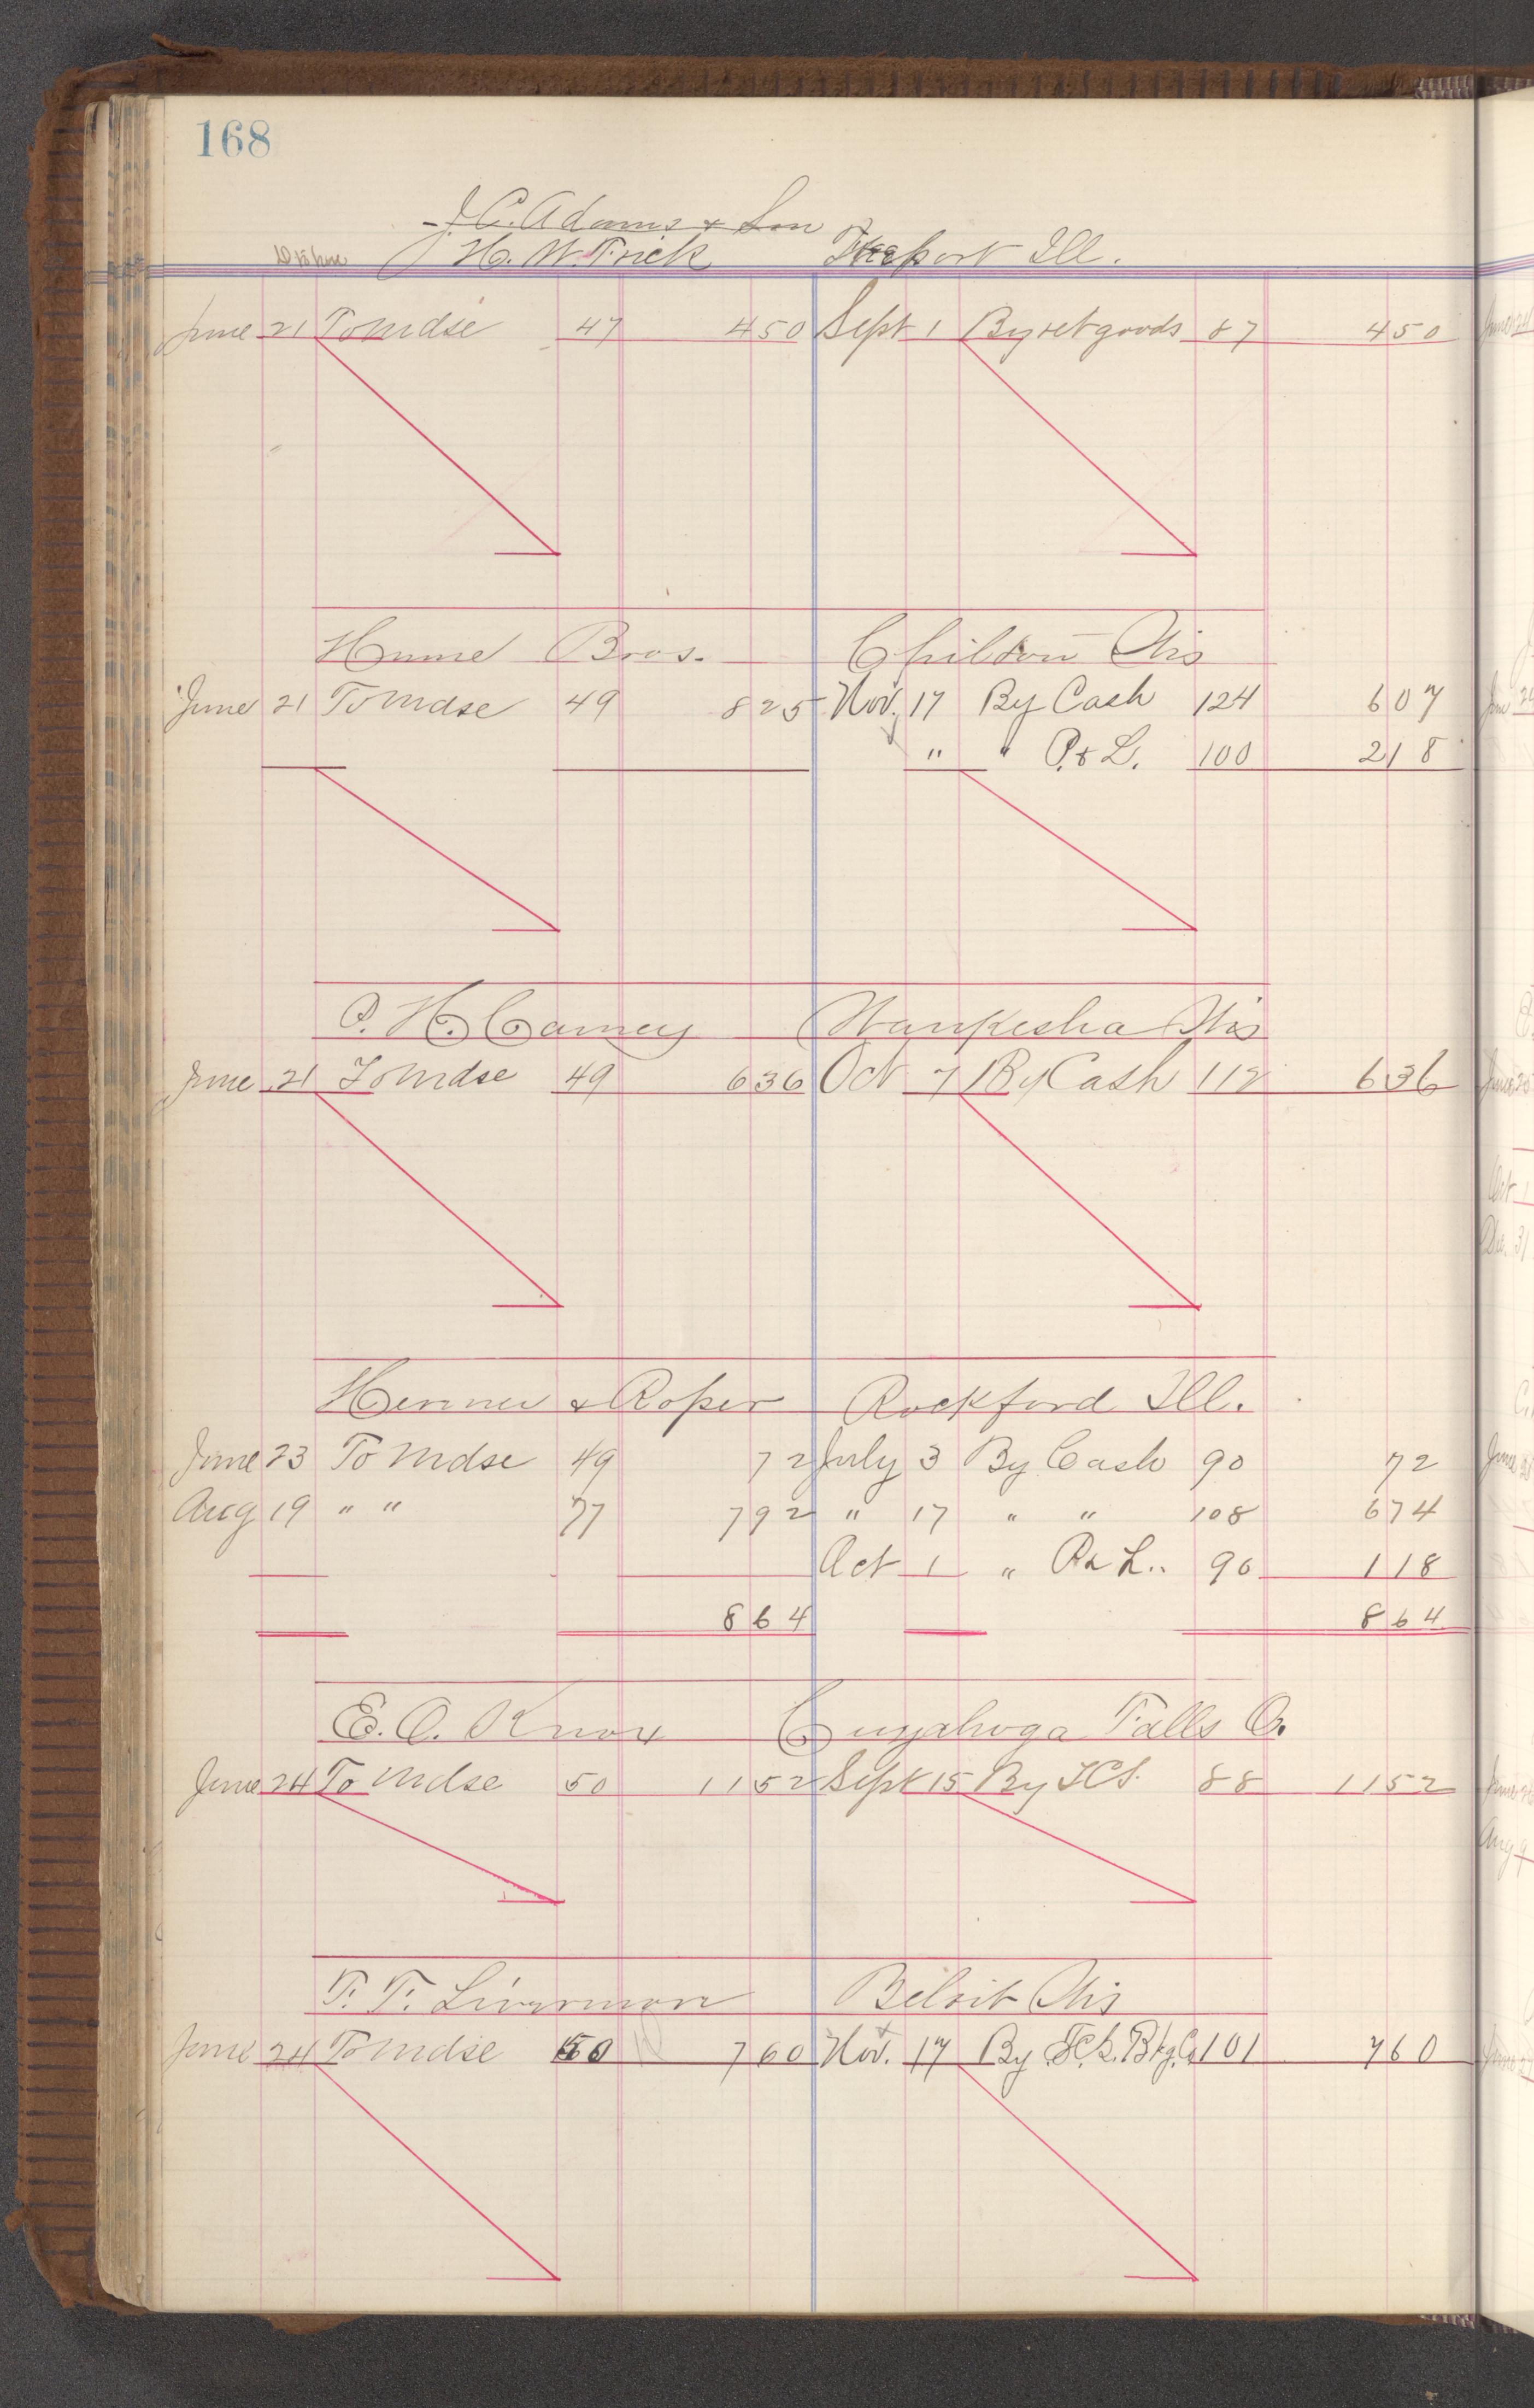 168
J. C. Adams & Son
H. W. Frick Freeport Ill.
June 21 To Mdse 47 450 Sept 1 By ret goods 87 450
Hume Bros. Chilton Wis
June 21 To Mdse 49 825 Nov. 17 By Cash 124 607
" " P. & L. 100 218
P. H. Carney Waukesha Wis
June 21 To Mdse 49 636 Oct 7 By Cash 112 636
& Roper Rockford Ill.
June 23 To Mdse 49 72 July 3 By Cash 90 72
Aug 19 " " 77 792 " 17 " " 108 674
Oct 1 " P & L. 90 118
864 864
E. O. Knox Cuyahoga Falls O.
June 24 To Mdse 50 1152 Sept 15 By 88 1152
F. F. Livermore Beloit Wis
June 24 To Mdse 50 760 Nov. 17 By Bkg. Co 101 760